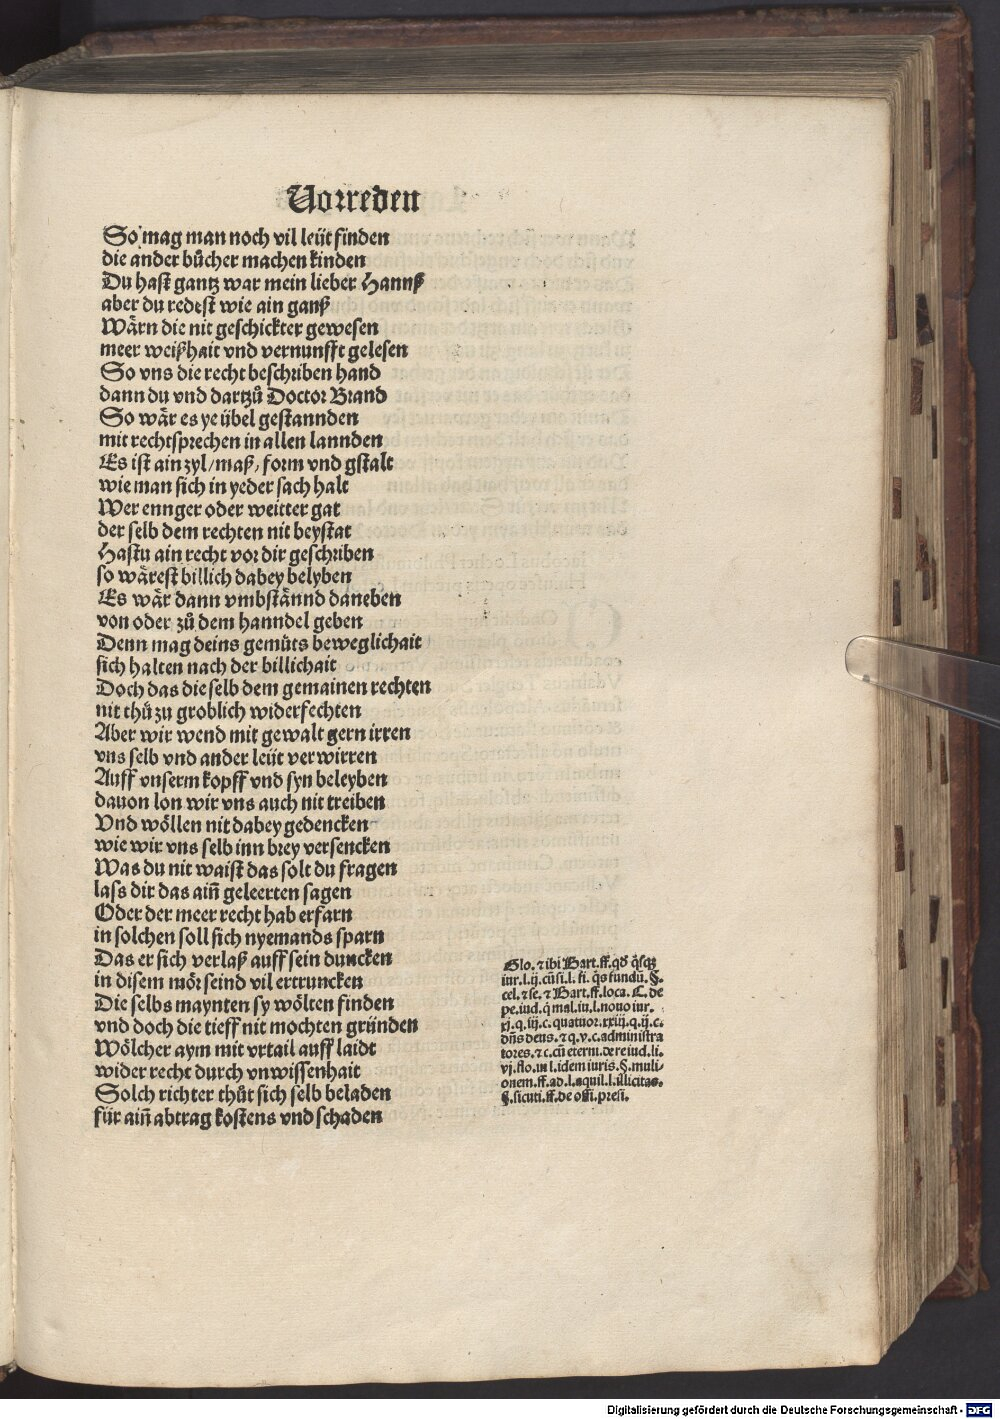 Vorreden
So mag man noch vil leüt finden
die ander bůcher machen kinden
Du hast gantz war mein lieber Hannß
aber du redest wie ain ganß
Wårn die nit geschickter gewesen
meer weißhait vnd vernunfft gelesen
So vns die recht beschriben hand
dann du vnd dartzů Doctor Brand
So wår es ye übel gestannden
mit rechtsprechen in allen lannden
Es ist ain zyl/maß/form vnd gstalt
wie man sich in yeder sach halt
Wer ennger oder weitter gat
der selb dem rechten nit beystat
Hastu ain recht vor dir geschriben
so wårest billich dabey belyben
Es wår dann vmbstånnd daneben
von oder zů dem hanndel geben
Denn mag deins gemůts beweglichait
sich halten nach der billichait
Doch das die selb dem gemainen rechten
nit thů zu groblich widerfechten
Aber wir wend mit gewalt gern irren
vns selb vnd ander leüt verwirren
Auff vnserm kopff vnd syn beleyben
dauon lon wir vns auch nit treiben
Vnd wöllen nit dabey gedencken
wie wir vns selb inn brey versencken
Was du nit waist das solt du fragen
lass dir das ainñ geleerten sagen
Oder der meer recht hab erfarn
in solchen soll sich nyemands sparn
Das er sich verlaß auff sein duncken
in disem mör seind vil ertruncken
Die selbs maynten sy wölten finden
vnd doch die tieff nit mochten gründen
Wölcher aym mit vrtail auff laidt
wider recht durch vnwissenhait
Solch richter thůt sich selb beladen
für ainñ abtrag kostens vnd schaden
Glo. ⁊ ibi Bart. ff. qđ q̃sq̃
iur. l. ij. cũsi. l. fi. q̃s fundũ. §.
cel. ⁊ se. ⁊ Bart. ff. loca. C. de
pe. iud. q̃ mal. iu. l. nouo iur.
xj. q. iij. c. quatuor. xxiij. q. ij. c.
dñs deus. ⁊ q. v. c. administra
tores. ⁊ c. cũ eterni. de re iud. li.
vj. flo. in l. idem iuris. §. muli-
onem. ff. ad. l. aquil. l. illicitas.
§. sicuti. ff. de offi. presi.
Digitalisierung gefördert durch die Deutsche Forschungsgemeinschaft - DFG